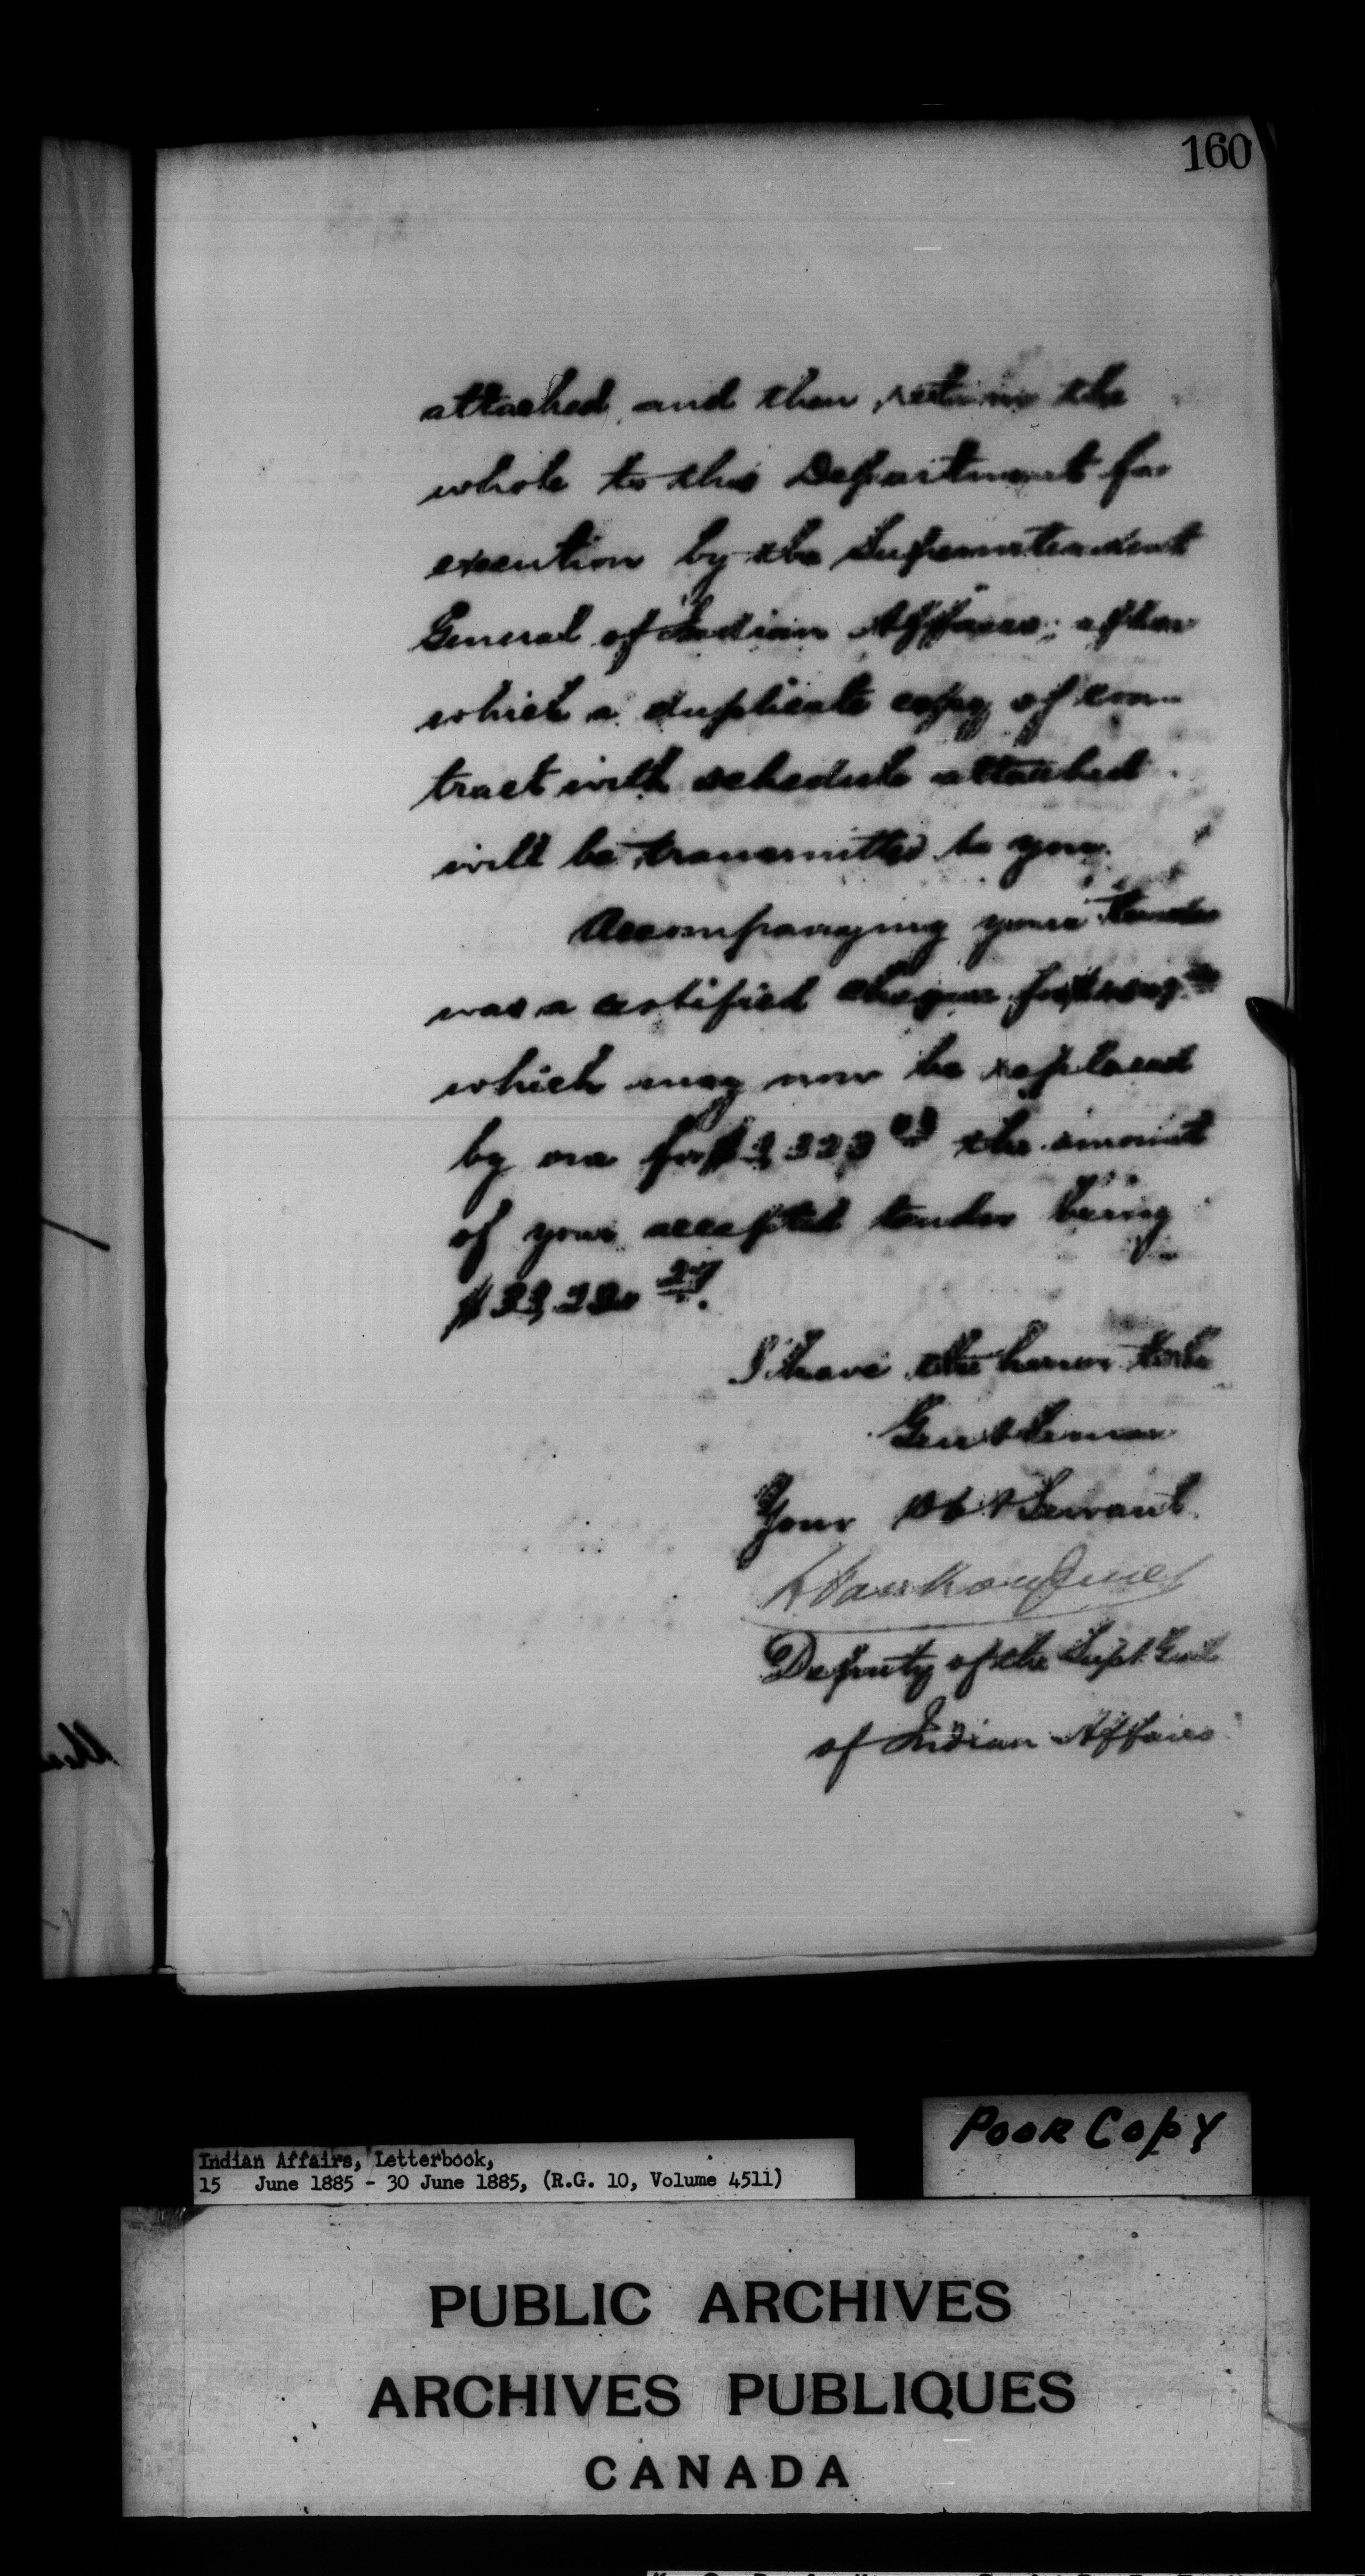 160
attached, and then return the
whole to this Department for
execution by the Superintendent
General of Indian Affairs; after
which a duplicate copy of con-
tract with schedule attached
will be transmitted to you.
Accompanying your tender
was a certified cheque for
which may now be replaced
by one for the amount
of your accepted tender being
I have the honor to be
Gentlemen
Your Obt Servant
L Vankoughnet
Deputy of the Supt. Genl
of Indian Affairs
POOR COPY
Indian Affairs, Letterbook,
15 June 1885 - 30 June 1885, (R.G. 10, Volume 4511)
PUBLIC ARCHIVES
ARCHIVES PUBLIQUES
CANADA